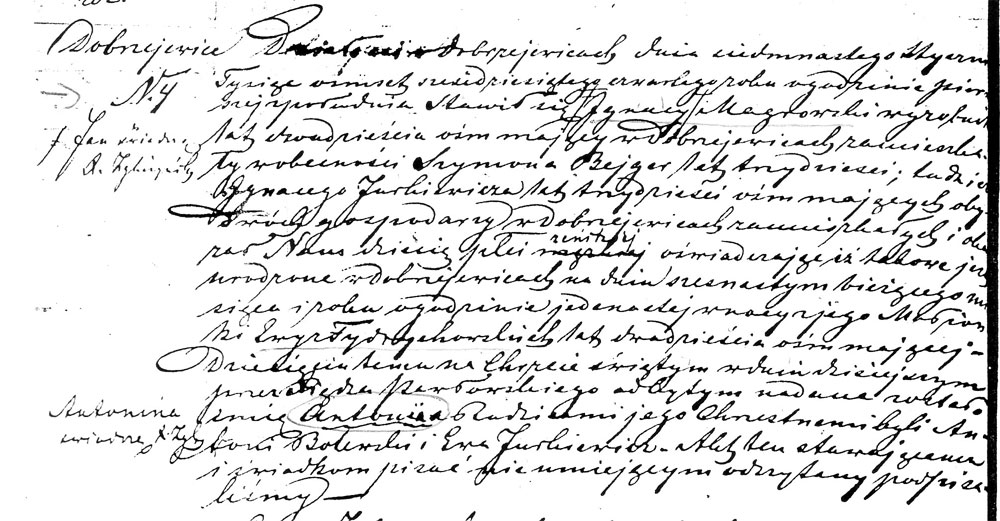 Dobrzejewice Działo się w Dobrzejewicach dnia siedmnastego Stycznia
N. 4 Tysiąc ośmset sześćdziesiątego czwartego roku o godzinie pierw
szej z południa Stawił się Ignacy Magrowski wyrobnik
lat dwadzieścia ośm mający w Dobrzejewicach zamieszka-
ły w obecności Szymona Bejger lat trzydzieści; tudzież
Ignacego Jurkiewicza lat trzydzieści ośm mających oby-
dwóch gospodarzy w Dobrzejewicach zamieszkałych i oka
zał Nam dziecię płci żeńskiej oświadczając iż takowe jest
urodzone w Dobrzejewicach na dniu szesnastym bieżącego mie
siąca i roku o godzinie jedenastej w nocy z jego Małżon
ki Ewy z lat dwadzieścia ośm mającej-
Dziecięciu temu na Chrzcie świętym w dniu dzisiejszym
przez Księdza odbytym nadane zostało
imię Antonina Rodzicami jego Chrzestnemi byli An-
toni i Ewa Jurkiewicz. Akt ten stawającemu
i świadkom pisać nie umiejącym odczytany podpisa-
liśmy
Jan
Antonina